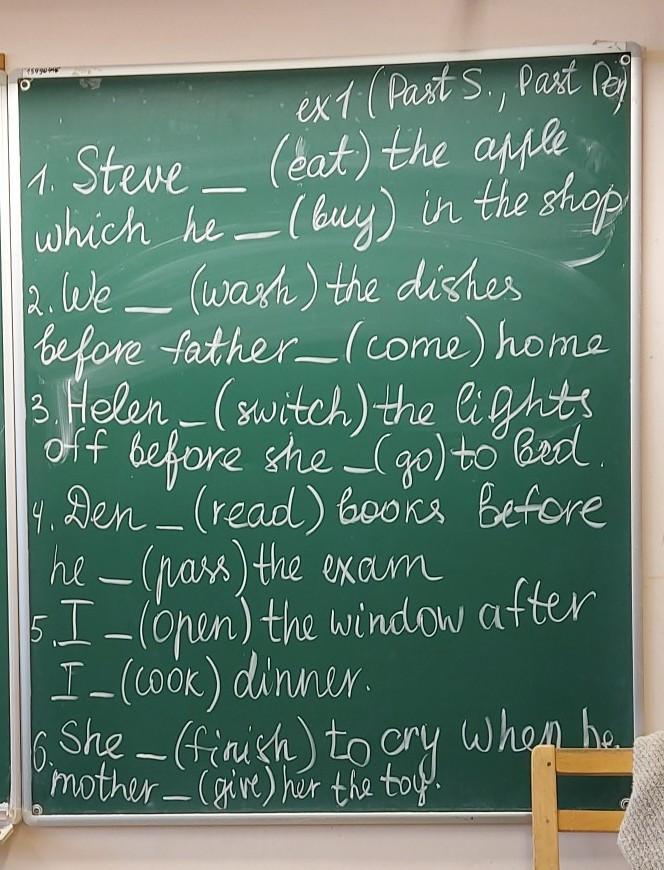 ex1 (Past S., Past Per)
1. Steve _ (eat) the apple
which he _ (buy) in the shop
2. We _ (wash) the dishes
before father _ (come) home
3. Helen _ (switch) the lights
off before she _ (go) to bed.
4. Den _ (read) books before
he _ (pass) the exam
5. I _ (open) the window after
I _ (cook) dinner.
6. She _ (finish) to cry when he
mother _ (give) her the toy.